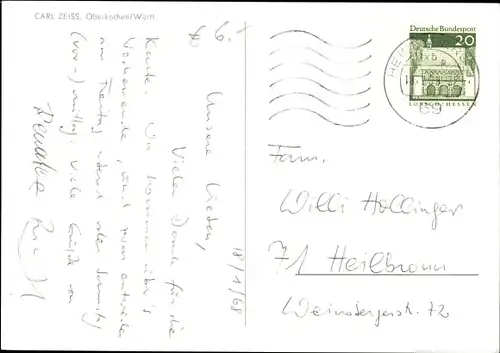 CARL ZEISS, Oberkochen/Württ.
6.-
18/1/68
Unsere Lieben,
Vielen Dank für die
Karte. Wir kommen über's
Wochenende, und zwar entweder
am Freitag abend oder Samstag
(vor-)mittag. Viele Grüße von
Deutsche Bundespost
20
LORSCH/HESSEN
69
Fam.
Willi Hollinger
71 Heilbronn
Weinsbergerstr. 72